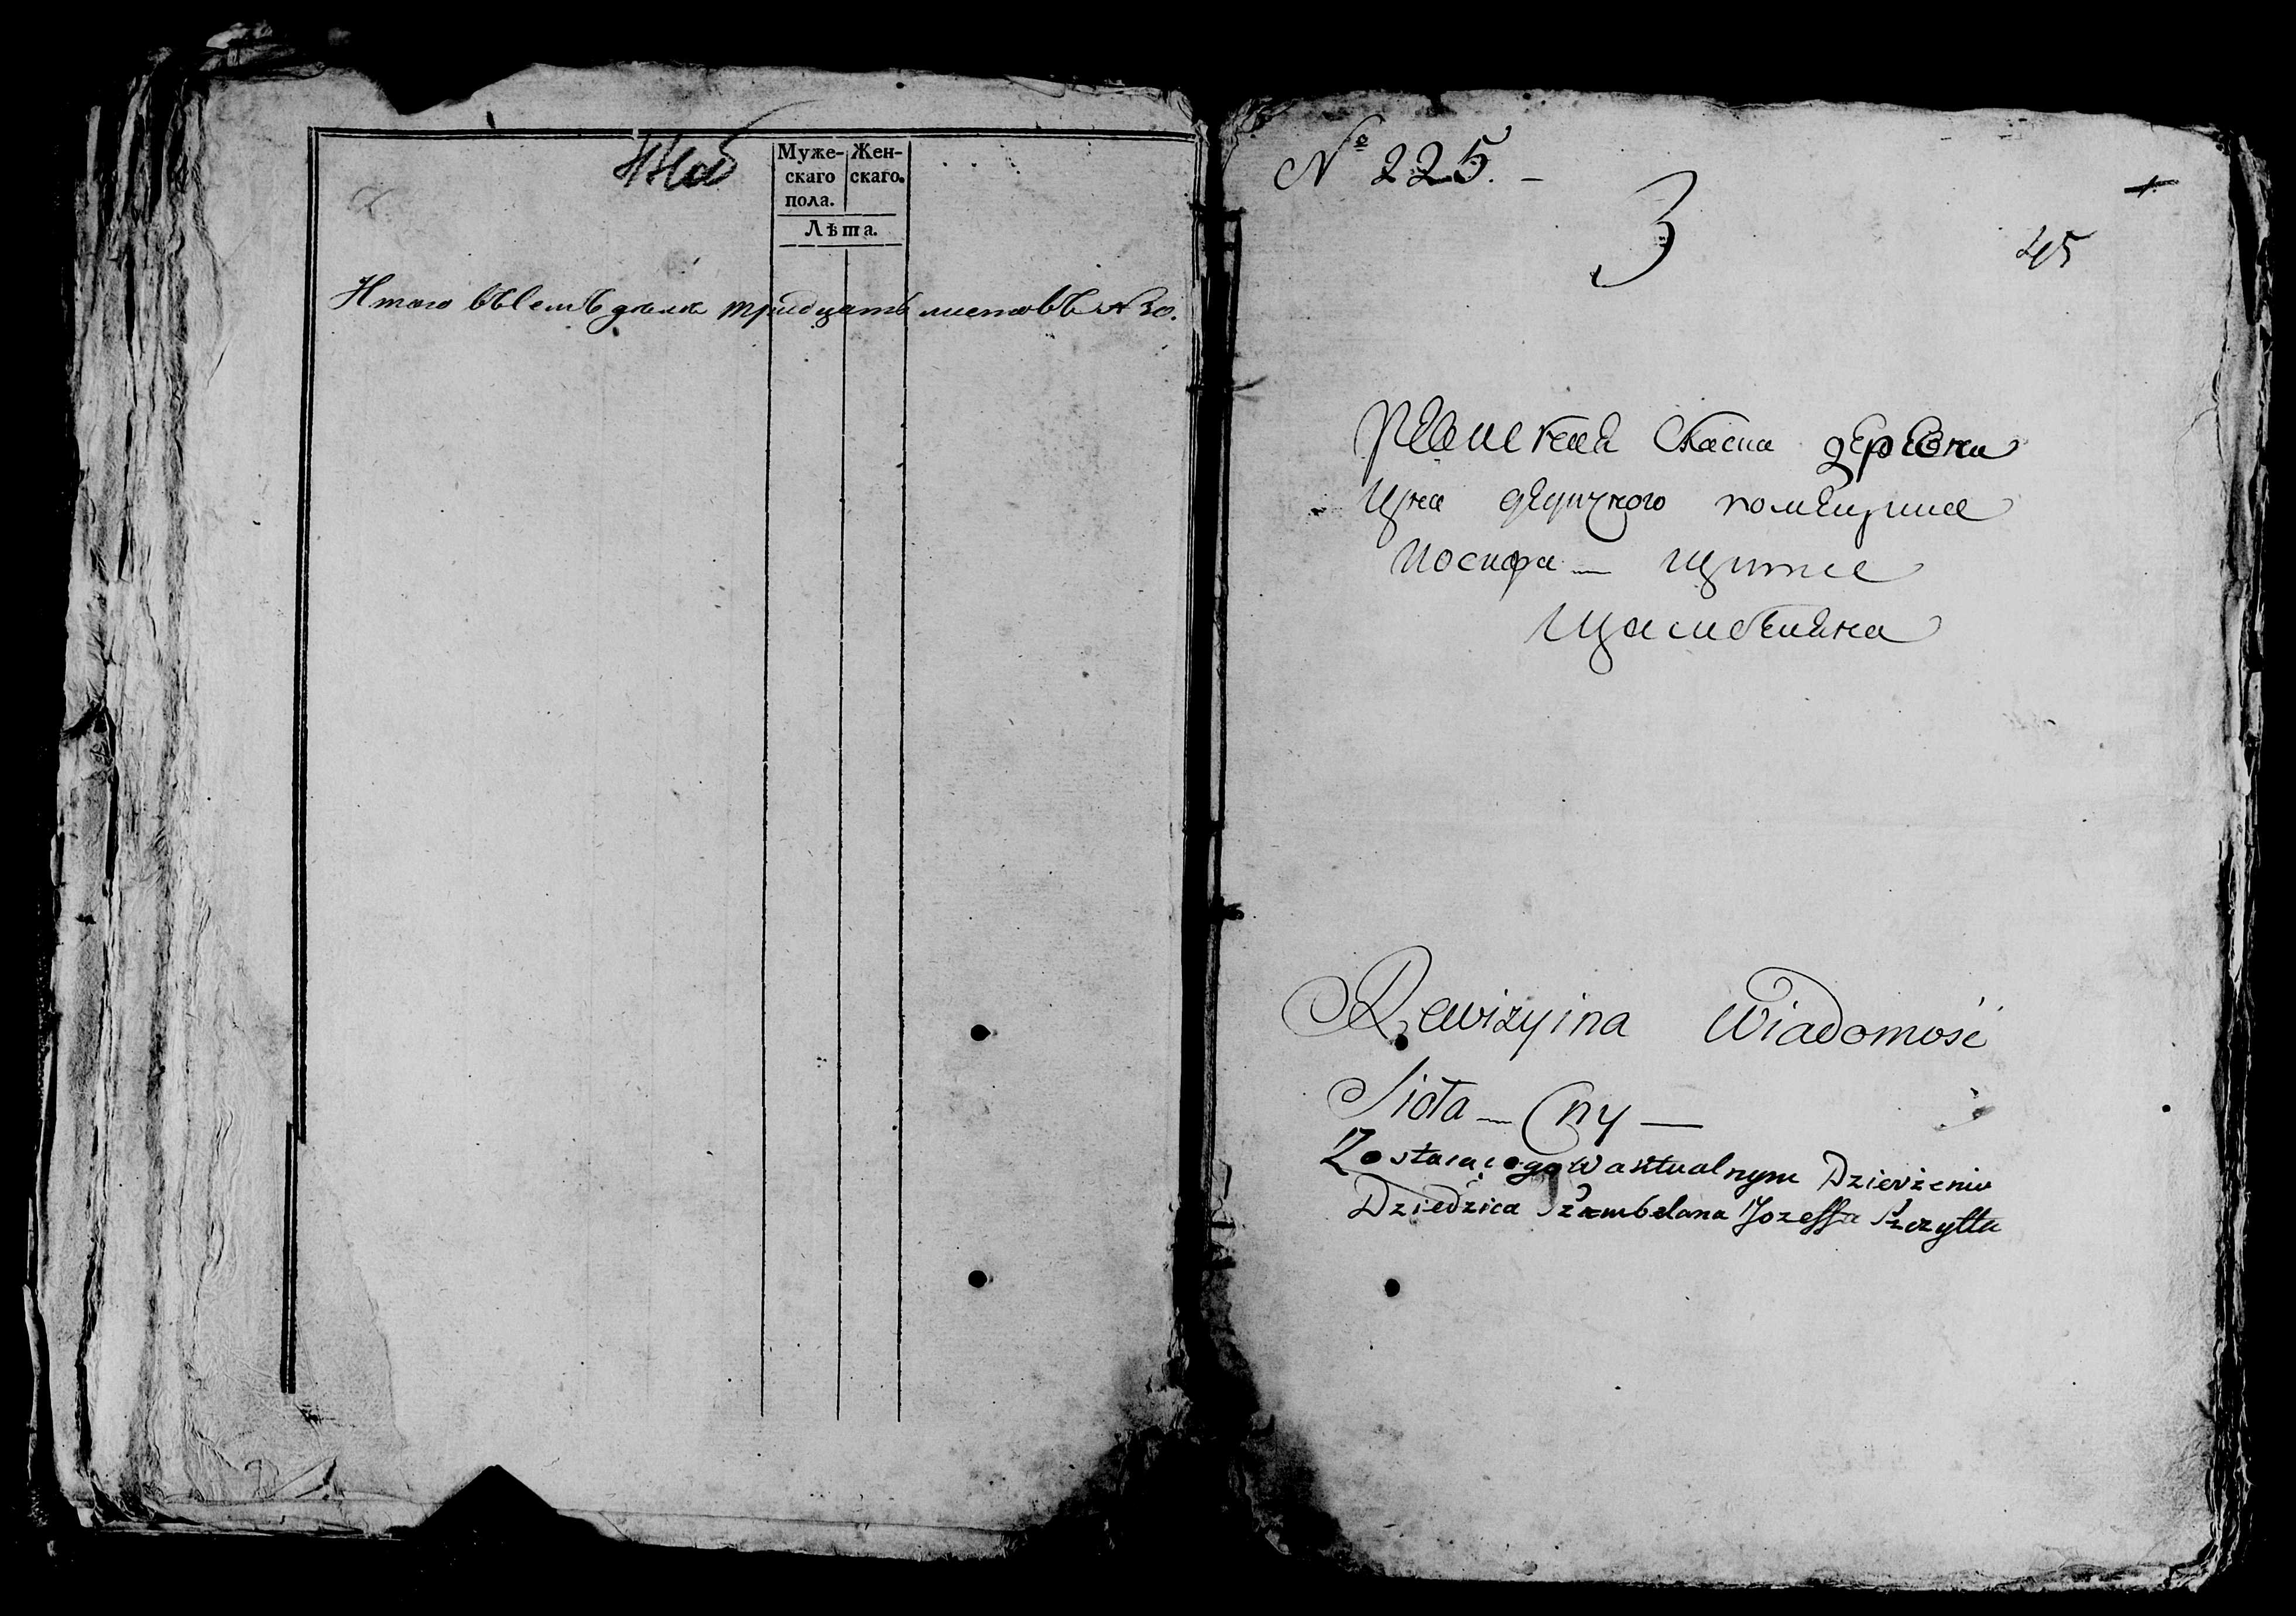 Муже- Жен-
скаго скаго.
пола.
Лѣта.
Итого въ семъ делѣ тридцать листовъ № 30.
№ 225. –
3
45
Ревиская Скаска деревни
Цна дедичного помещика
Иосифа — Щита
Щамбеляна
Rewizyina Wiadomość
Sioła — Cny —
Zostaiącego w aktualnym Dzierżeniu
Dziedzica Szambelana Jozeffa Szczytta